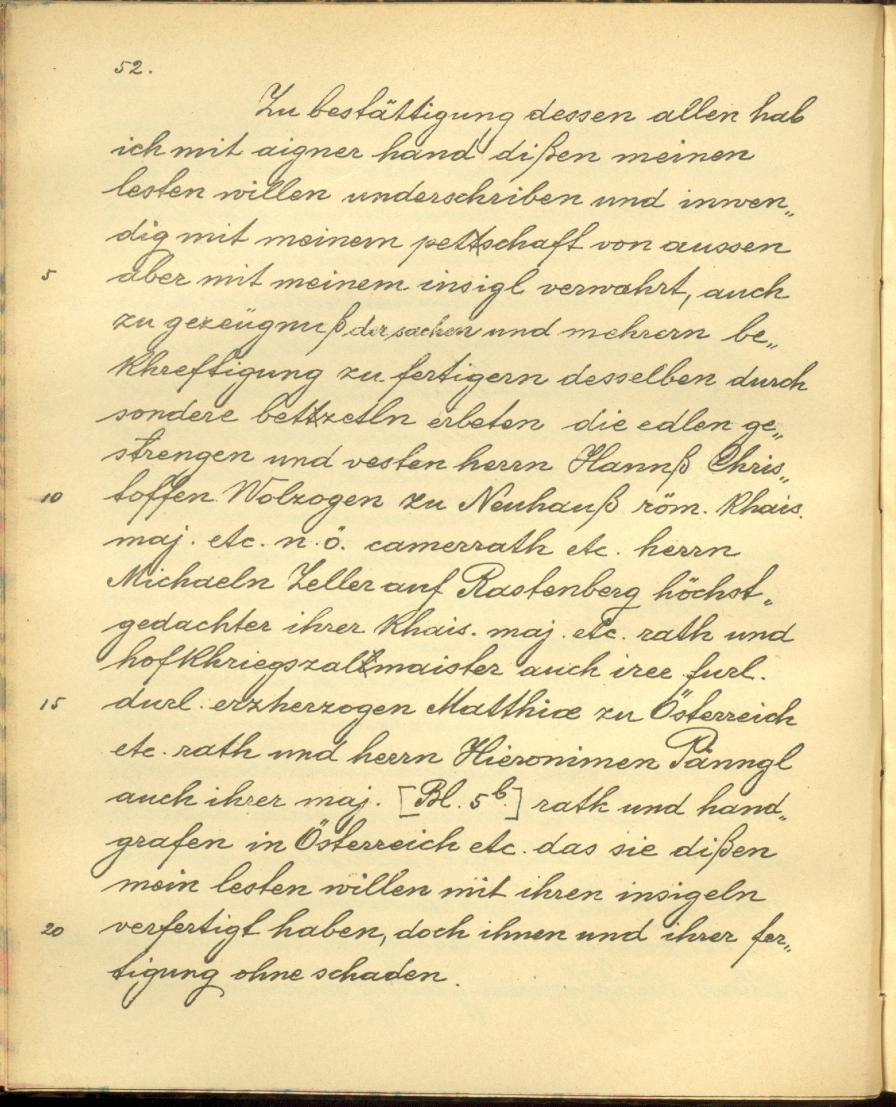 52.
Zu bestättigung dessen allen hab
ich mit aigner hand dißen meinen
lesten willen underschriben und inwen„
dig mit meinem pettschaft von aussen
5 aber mit meinem insigl verwahrt, auch
zu gezeügnuß der sachen und mehrern be„
khreftigung zu fertigern desselben durch
sondere bettzetln erbeten die edlen ge„
strengen und vesten herrn Hannß Chris„
10 toffen Wolzogen zu Neuhauß röm. khais.
maj. etc. n. ö. camerrath etc. herrn
Michaeln Zeller auf Rastenberg höchst„
gedachter ihrer khais. maj. etc. rath und
hofkhriegszaltmaister auch irer furl.
15 durl. erzherzogen Matthiæ zu Österreich
etc. rath und herrn Hieronimen Pänngl
auch ihrer maj. [Bl. 5b.] rath und hand„
grafen in Österreich etc. das sie dißen
mein lesten willen mit ihren insigeln
20 verfertigt haben, doch ihnen und ihrer fer„
tigung ohne schaden.